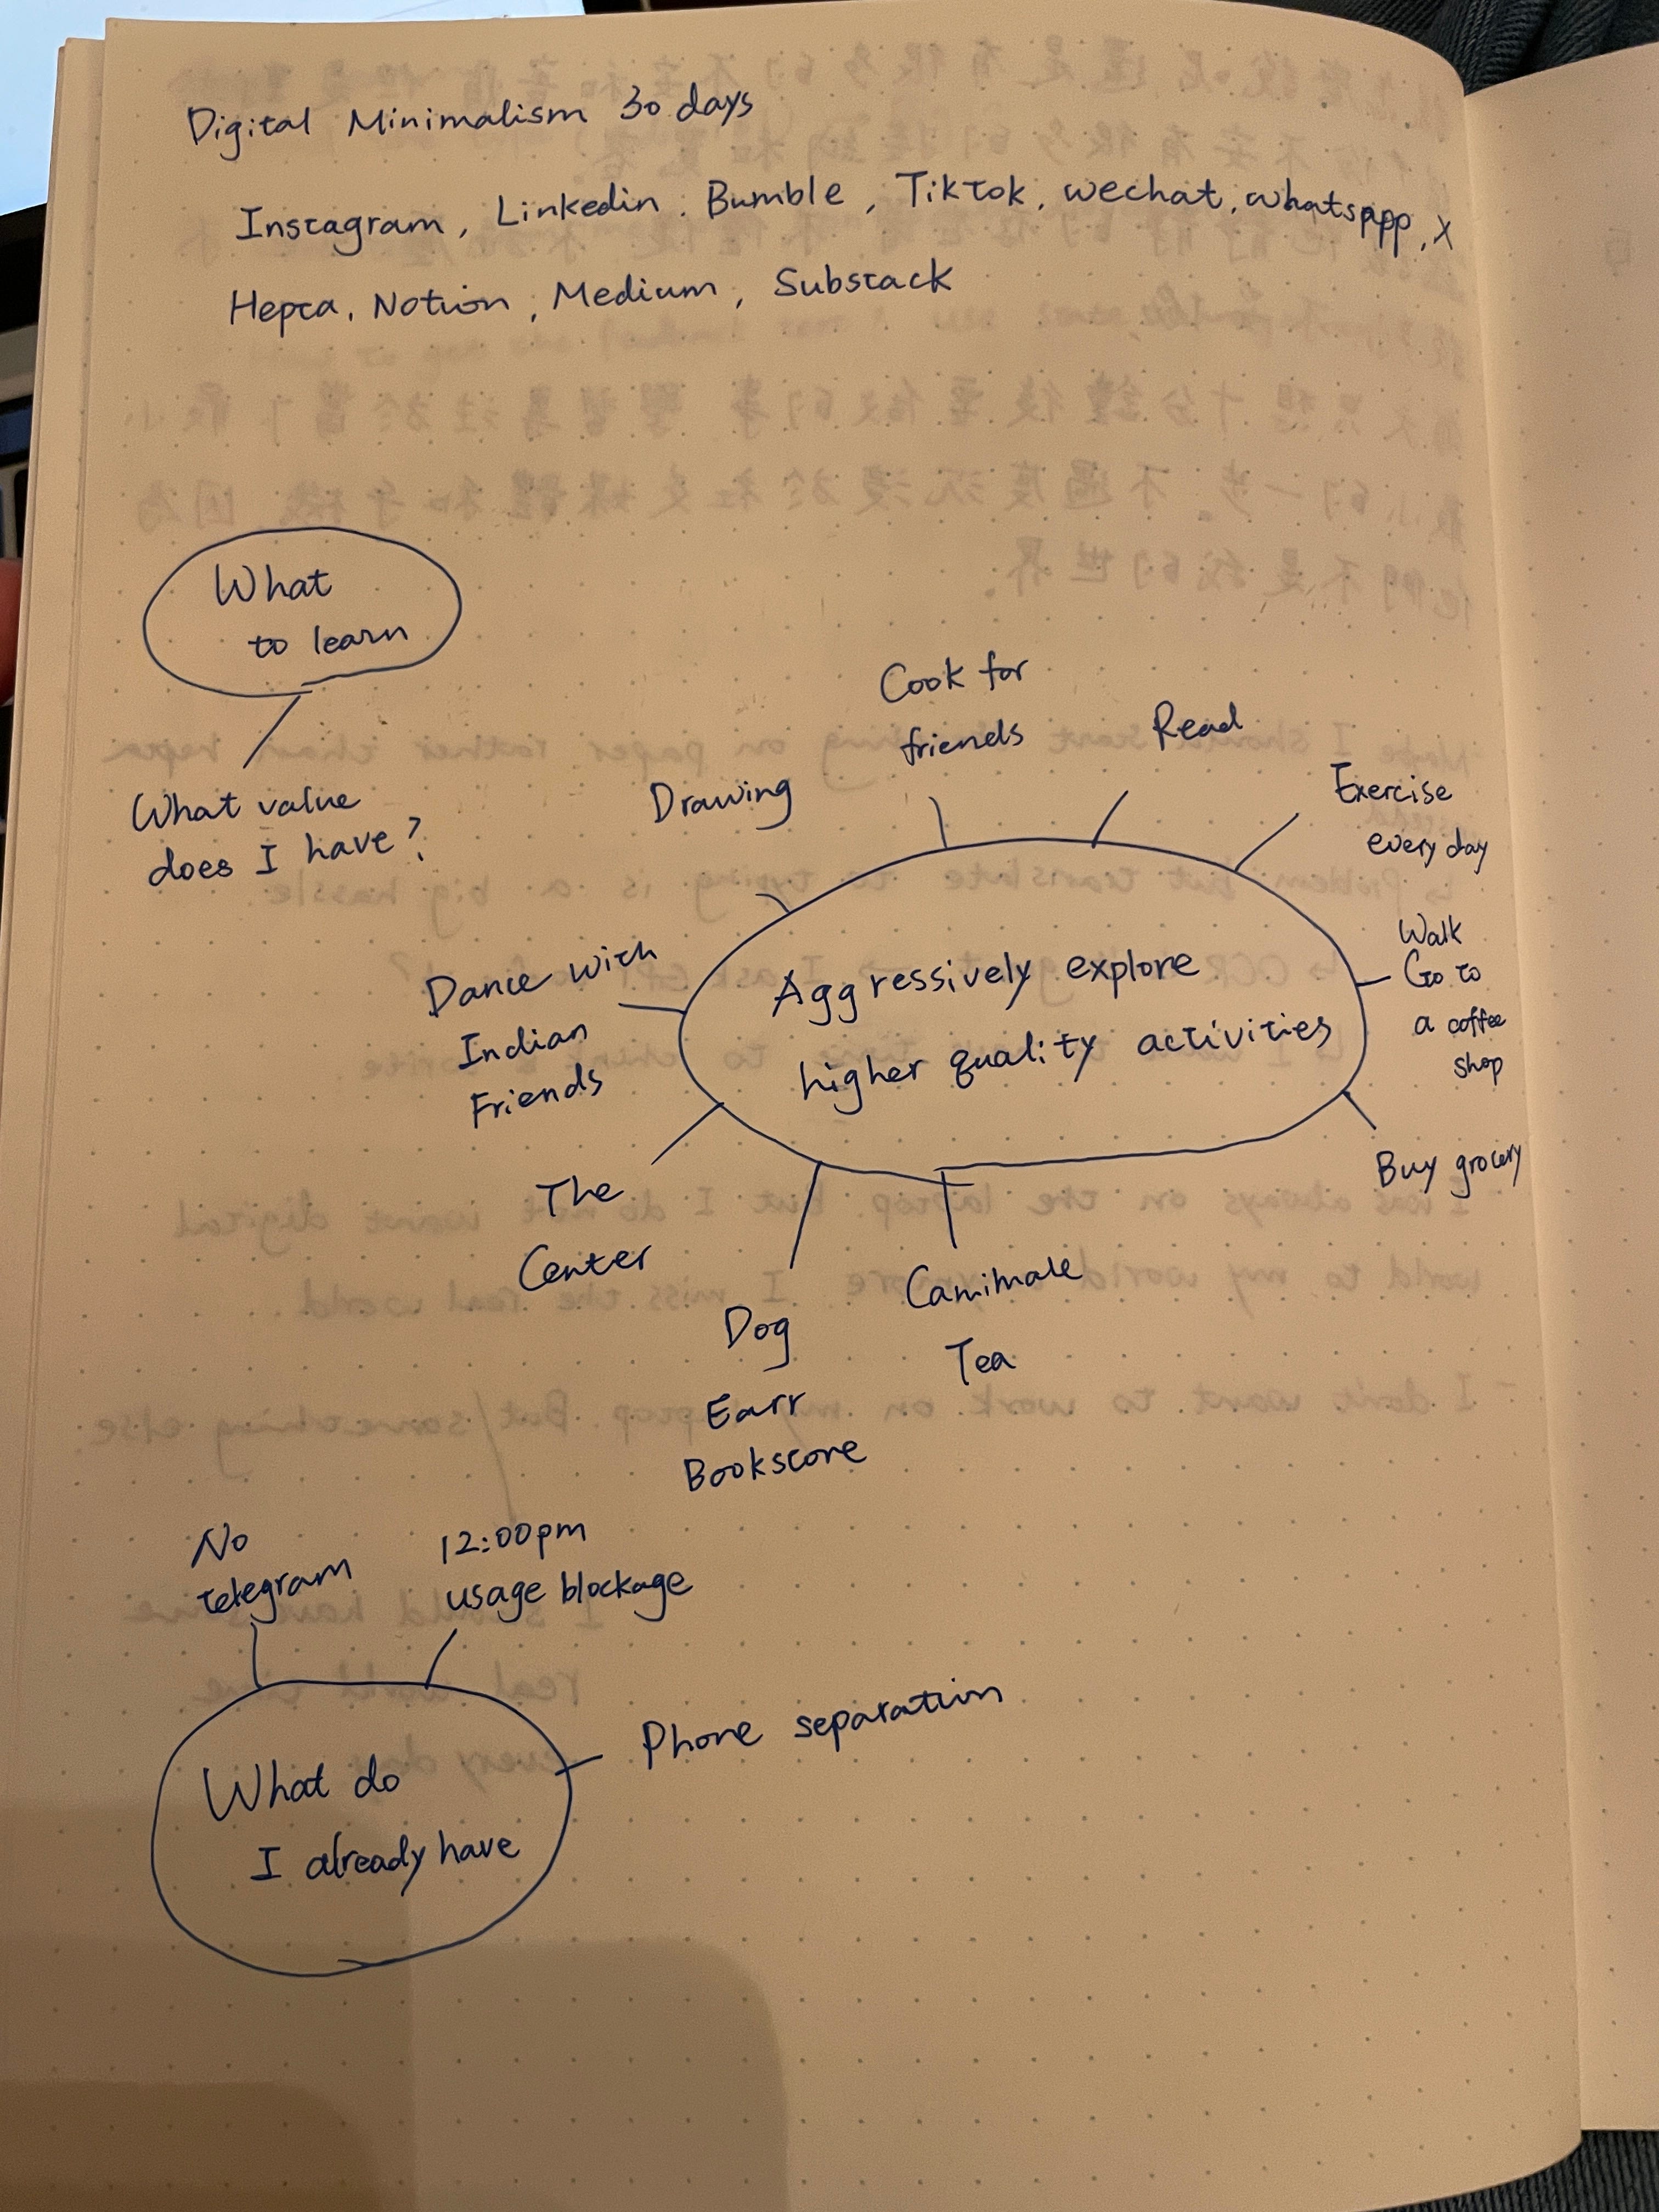 Digital Minimalism 30 days
Instagram, Linkedin, Bumble, TikTok, wechat, whatsapp, X
Hepta, Notion, Medium, Substack
What
to learn
What value
does I have?
Cook for
friends
Read
Drawing
Exercise
every day
Walk
Go to
a coffee
shop
Dance with
Indian
Friends
Aggressively explore
higher quality activities
Buy grocery
The
Center
Dog
Earr
Bookstore
Camimale
Tea
No
telegram
12:00pm
usage blockage
Phone separation
What do
I already have